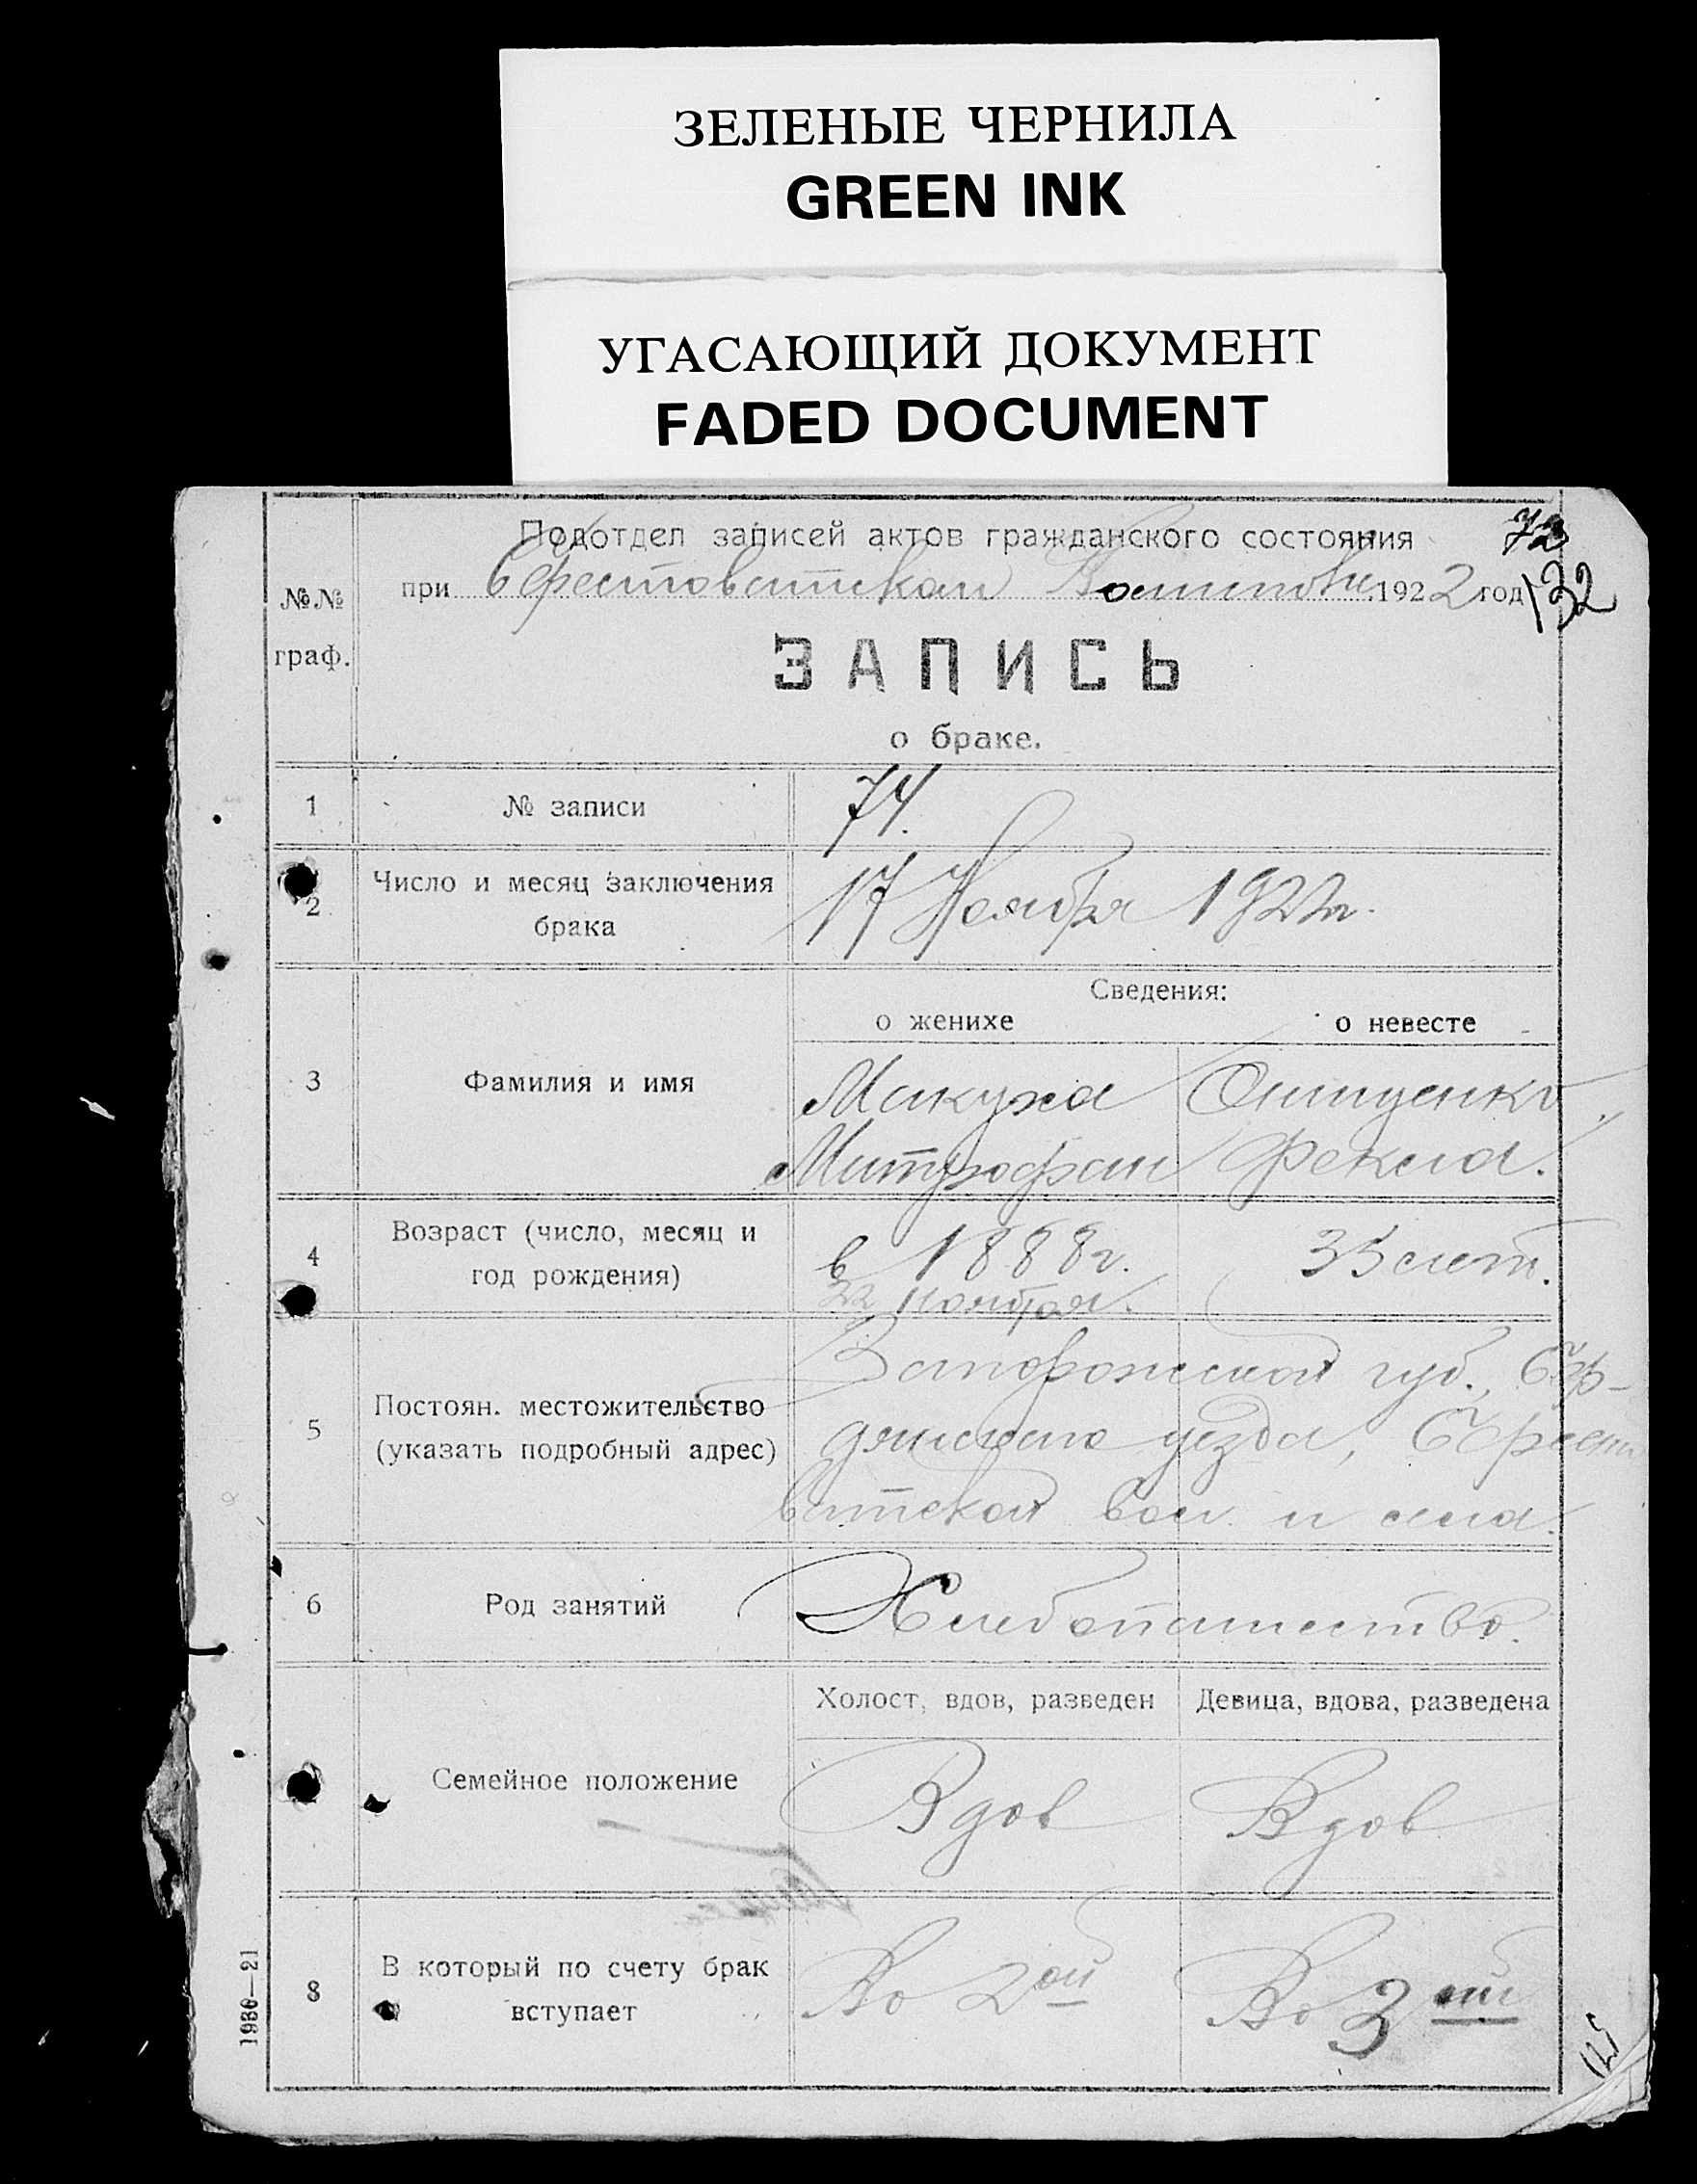 ЗЕЛЕНЫЕ ЧЕРНИЛА
GREEN INK
УГАСАЮЩИЙ ДОКУМЕНТ
FADED DOCUMENT
73
Подотдел записей актов гражданского состояния
при Берестоватской 1922 год
132
№№
граф.
ЗАПИСЬ
о браке.
1 № записи 74.
2 Число и месяц заключения
брака
17 Ноября 1922г.
Сведения:
о женихе о невесте
3 Фамилия и имя
Макуха Онищенко
Митрофан Фекла.
4 Возраст (число, месяц и
год рождения)
в 1888г. 35 лет.
22 ноября.
5 Постоян. местожительство
(указать подробный адрес)
Запорожской губ., Бер-
дянского уезда, Бересто
ватской вол. и села.
6 Род занятий Хлебопашество.
Холост, вдов, разведен Девица, вдова, разведена
Семейное положение Вдов Вдов
8 В который по счету брак
вступает
Во 2ой Во 3ий
1930—21
125